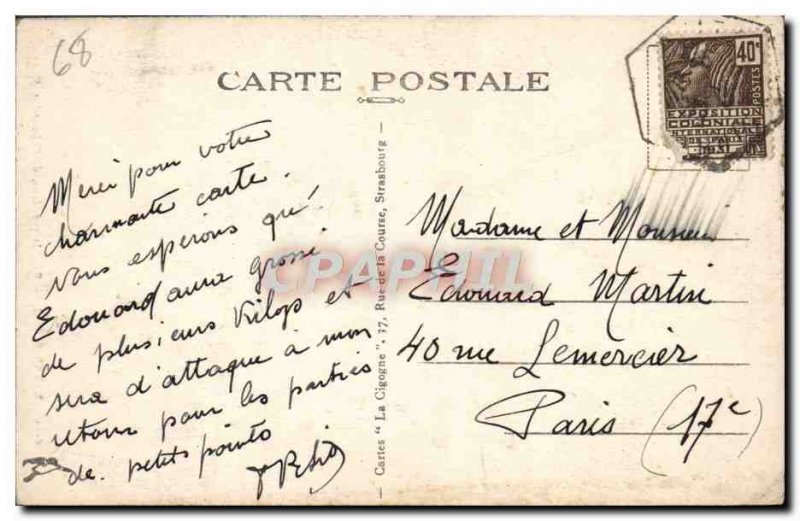 68
CARTE POSTALE
40c
POSTES
EXPOSITION
COLONIALE
INTERNATIONALE
PARIS
1931
Merci pour votre
charmante carte.
Nous espérons qu'
Edouard aura grossi
de plusieurs Kilogs et
sera d'attaque à mon
retour pour les parties
de petits points
Cartes "La Cigogne", 37, Rue de la Course, Strasbourg
CPARHIL
Madame et Monsieur
Edouard Martin
40 rue Lemercier
Paris (17e)